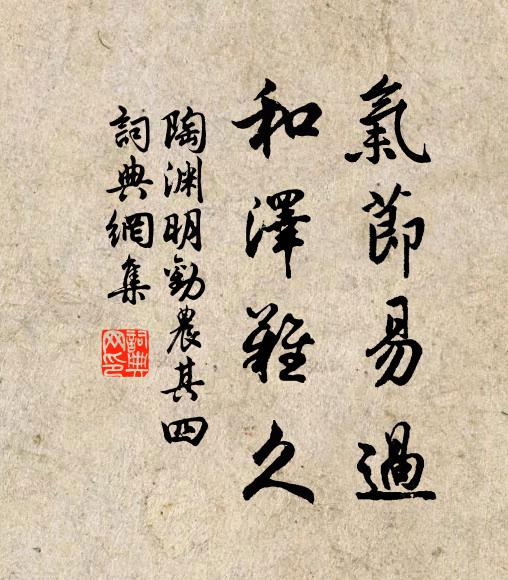 氣節易過
和澤難久
陶渊明勸農其四
詞典網集
詞典
网印